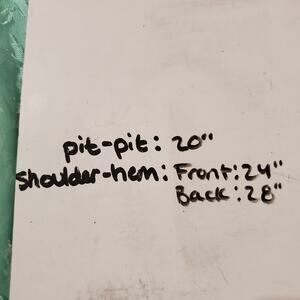 pit-pit: 20"
Shoulder-hem: Front: 24"
Back: 28"